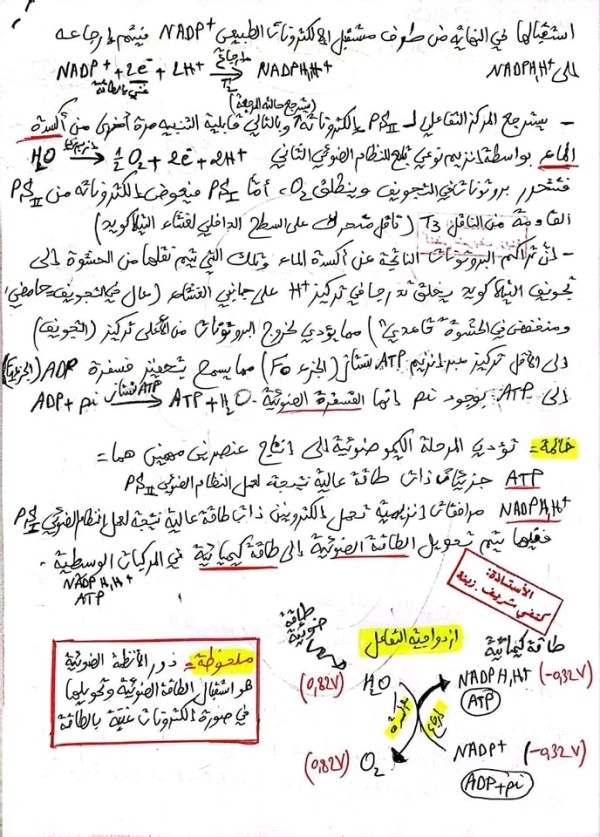 استقبالها في النهاية من طرف مستقبل الإلكترونات الطبيعي NADP⁺ فيتم إرجاعه
إلى NADPH,H⁺
NADP⁺ + 2e⁻ + 2H⁺ → NADPH,H⁺
إرجاع
غني بالطاقة
(يسترجع حالته المرجعة)
- يسترجع المركز التفاعلي لـ PSII إلكتروناته وبالتالي قابلية التنبيه مرة أخرى من أكسدة
الماء بواسطة إنزيم نوعي تابع للنظام الضوئي الثاني H₂O → ½O₂ + 2e⁻ + 2H⁺
فتتحرر بروتونات في التجويف وينطلق O₂، أما PSI فيعوض إلكتروناته من PSII
القادمة من الناقل T3 (ناقل متحرك على السطح الداخلي لغشاء التيلاكويد)
- إن تراكم البروتونات الناتجة عن أكسدة الماء وتلك التي يتم نقلها من الحشوة إلى
تجويف التيلاكويد يخلق تدرجا في تركيز H⁺ على جانبي الغشاء (عال في التجويف "حامضي"
ومنخفض في الحشوة "قاعدي") مما يؤدي لخروج البروتونات من الأعلى تركيز (التجويف)
إلى الأقل تركيز عبر إنزيم ATP سنتاز (الجزء F₀) مما يسمح بتحفيز فسفرة ADP
إلى ATP بوجود pi إنها الفسفرة الضوئية. ADP + pi → ATP + H₂O
ATP سنتاز
خاتمة = تؤدي المرحلة الكيموضوئية إلى إنتاج عنصرين مهمين هما =
ATP جزيئات ذات طاقة عالية نتيجة لعمل النظام الضوئي PSII
NADPH,H⁺ مرافقات إنزيمية تحمل إلكترونين ذات طاقة عالية نتيجة لعمل النظام الضوئي PSI
ففيها يتم تحويل الطاقة الضوئية إلى طاقة كيميائية في المركبات الوسطية.
NADPH,H⁺
ATP
الأستاذة:
كتفي شريف زينة
ملحوظة = دور الأنظمة الضوئية
هو استقبال الطاقة الضوئية وتحويلها
في صورة إلكترونات غنية بالطاقة
طاقة
ضوئية
ازدواجية التفاعل
طاقة كيميائية
(0,82V) H₂O
NADPH,H⁺ (-0,32V)
ATP
أكسدة
إرجاع
(0,82V) O₂
NADP⁺ (-0,32V)
ADP+pi